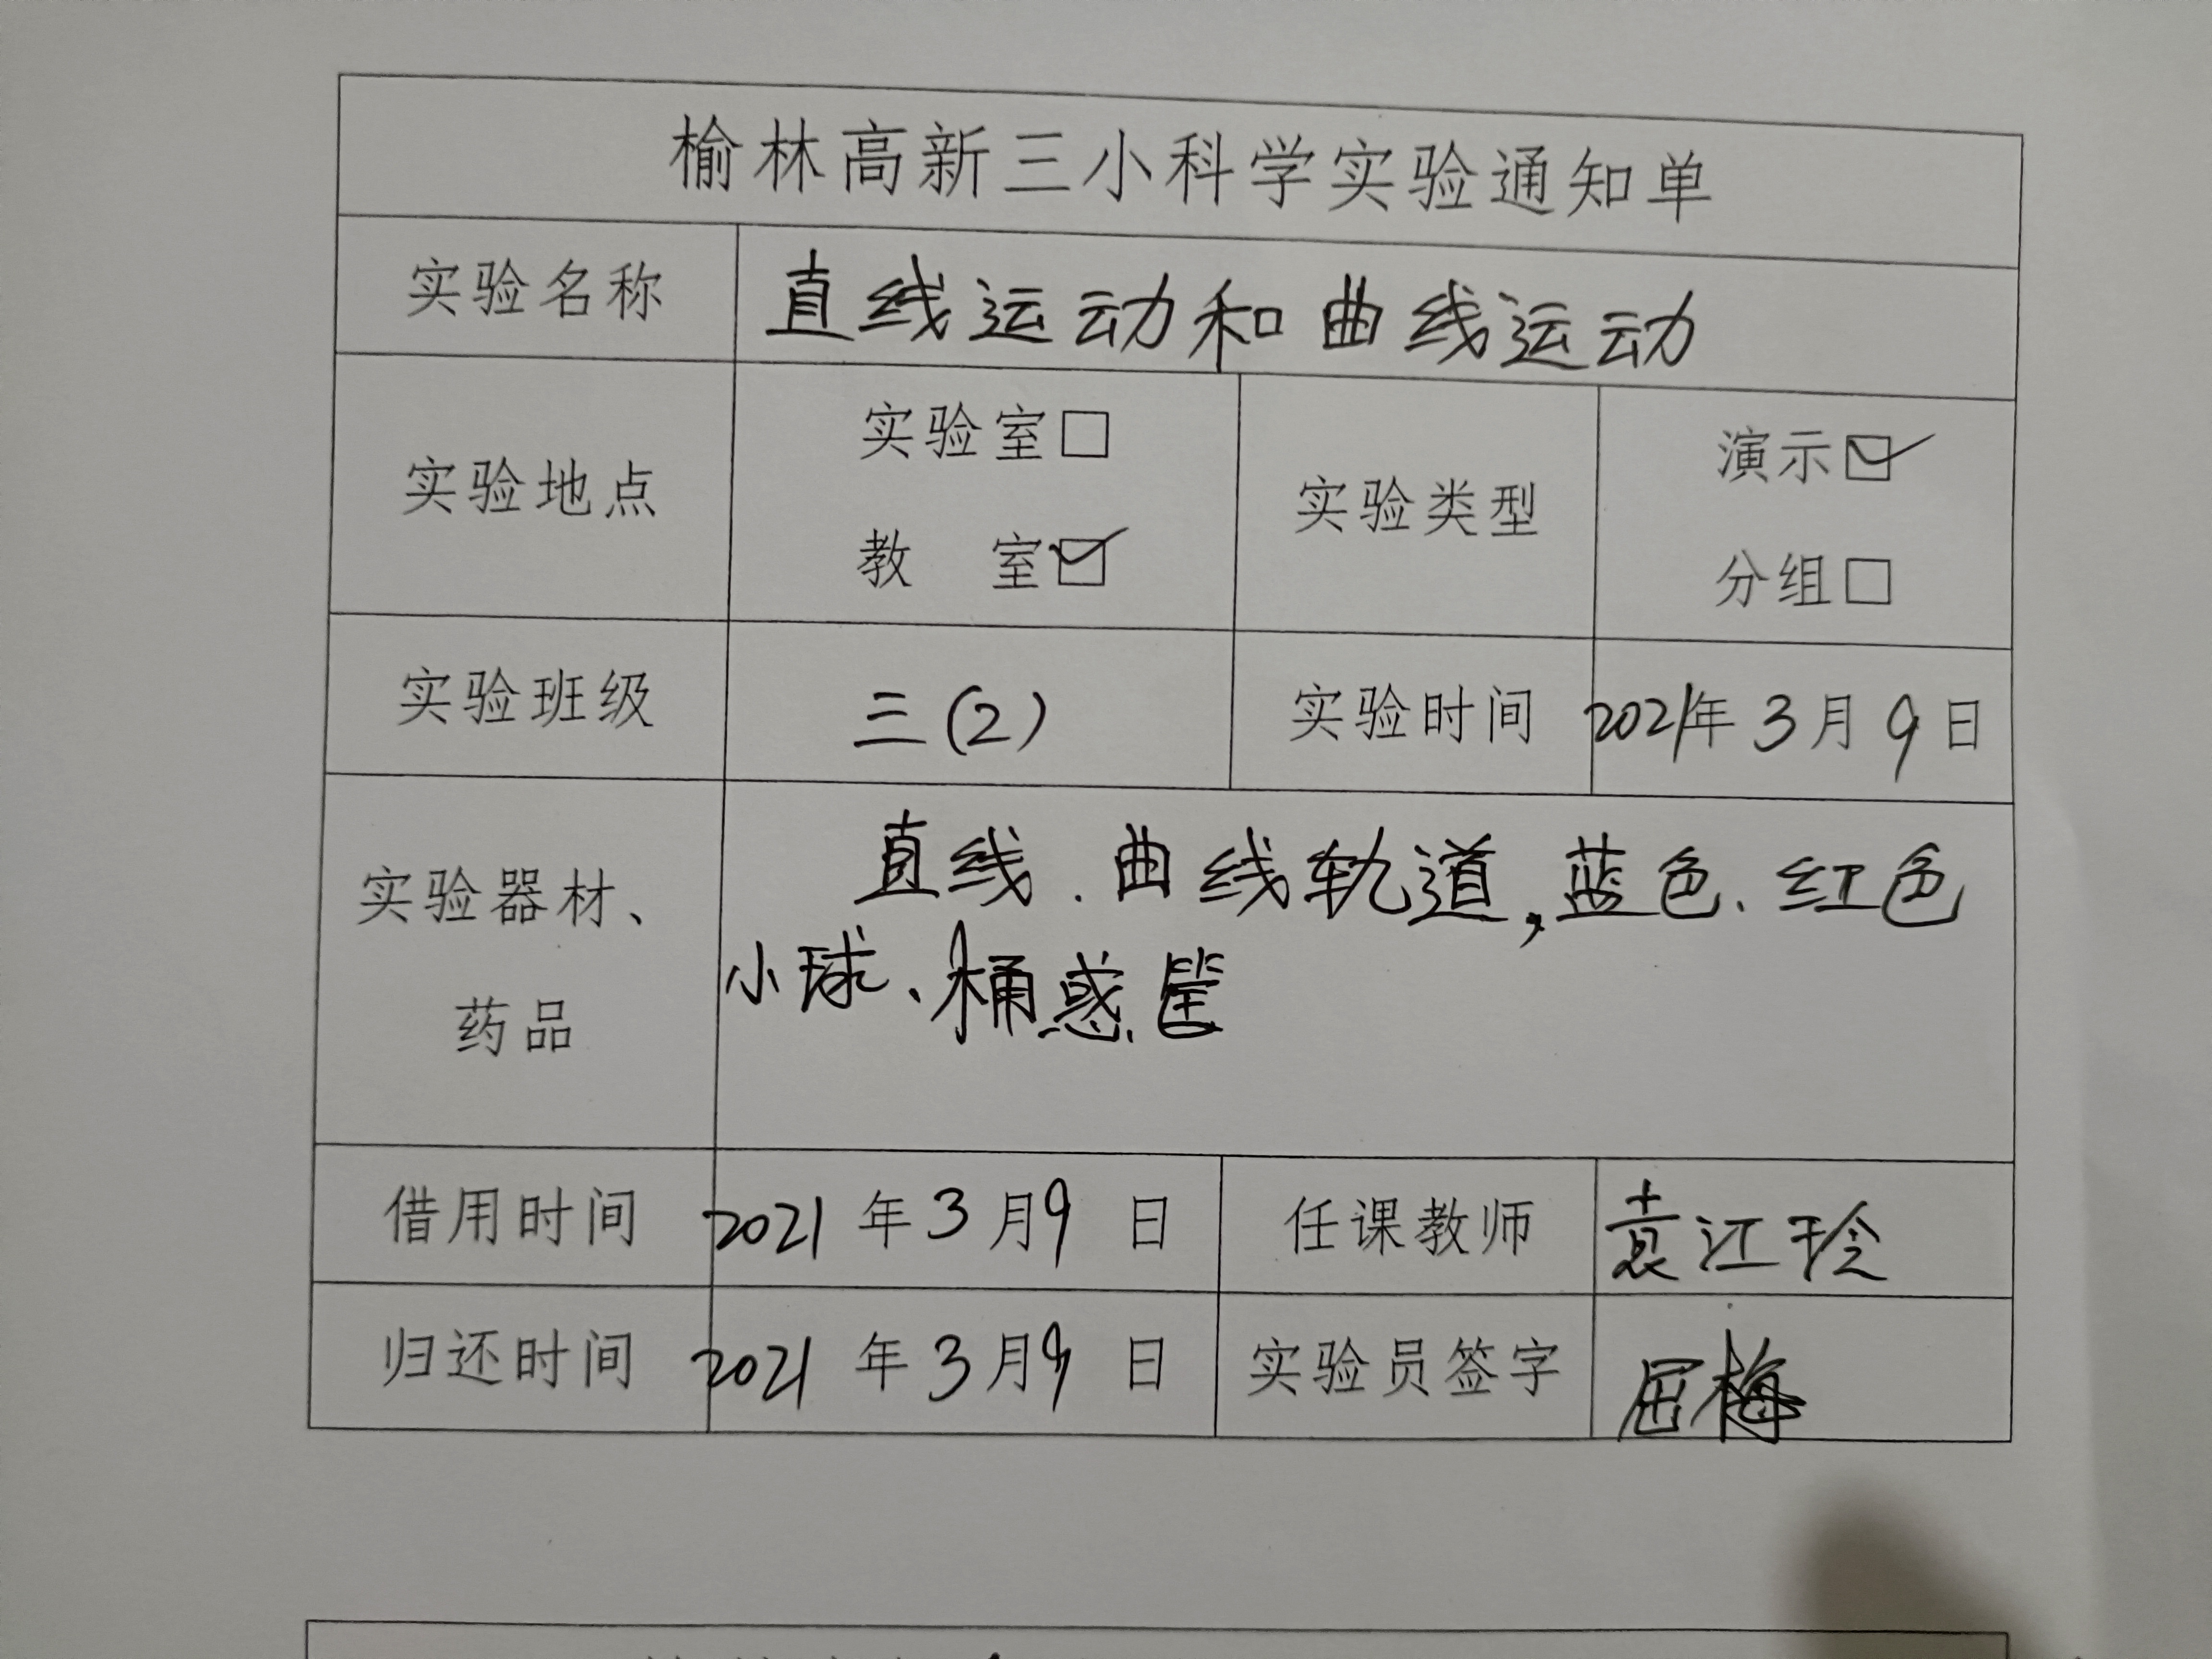 榆林高新三小科学实验通知单
实验名称 直线运动和曲线运动
实验地点 实验室□ 教 室☑ 实验类型 演示☑ 分组□
实验班级 三(2) 实验时间 2021年3月9日
实验器材、药品 直线、曲线轨道,蓝色、红色
小球、桶或筐
借用时间 2021年3月9日 任课教师 袁江玲
归还时间 2021年3月9日 实验员签字 屈梅